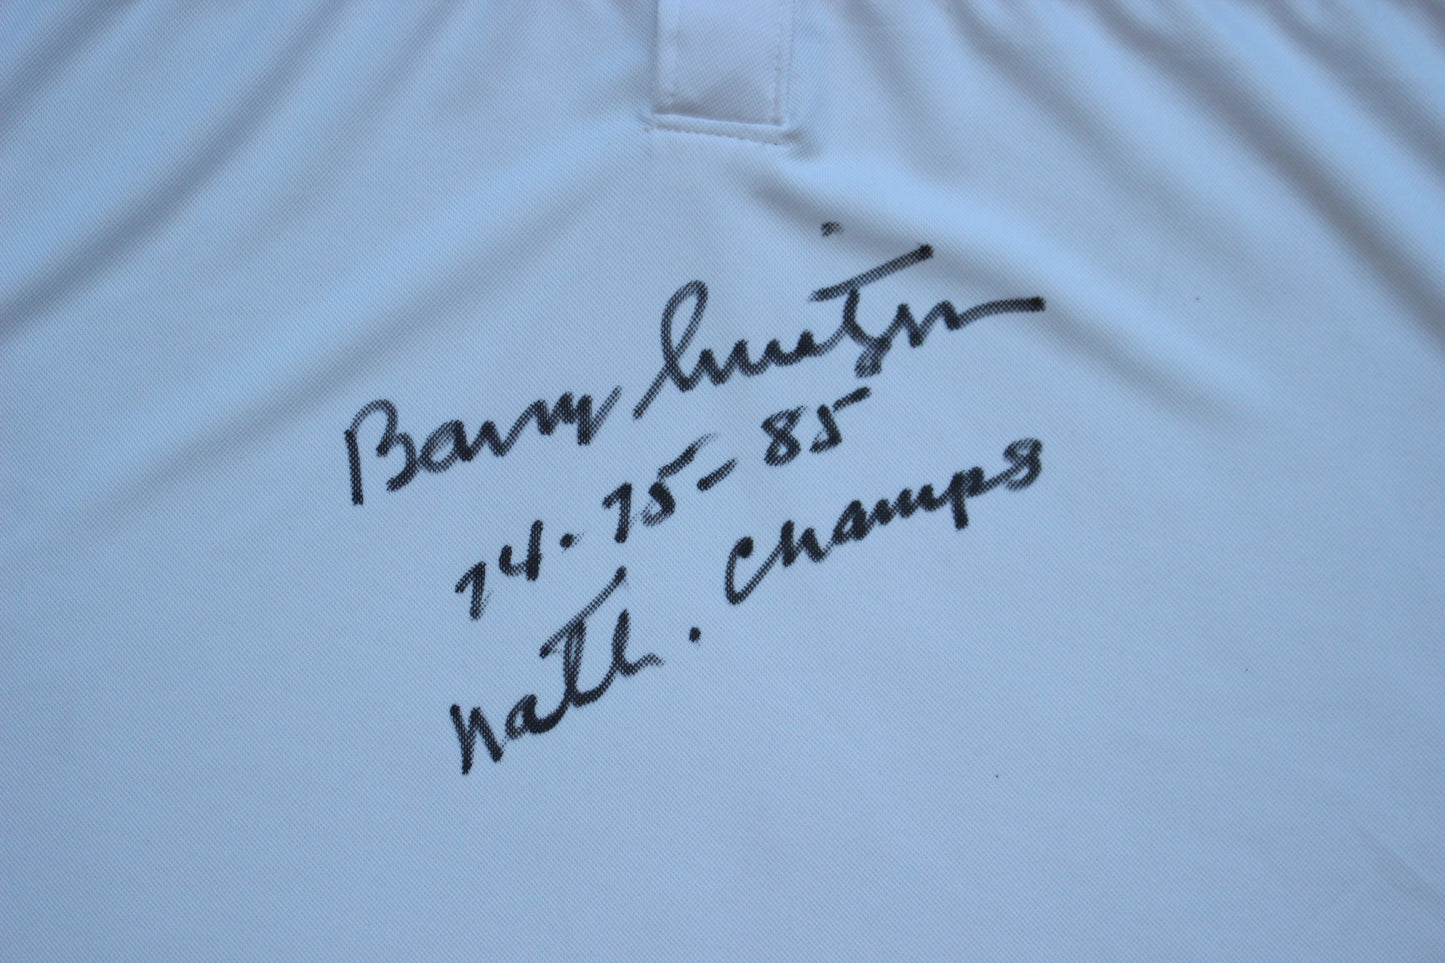 Barry Switzer
74. 75-85
Natl. Champs